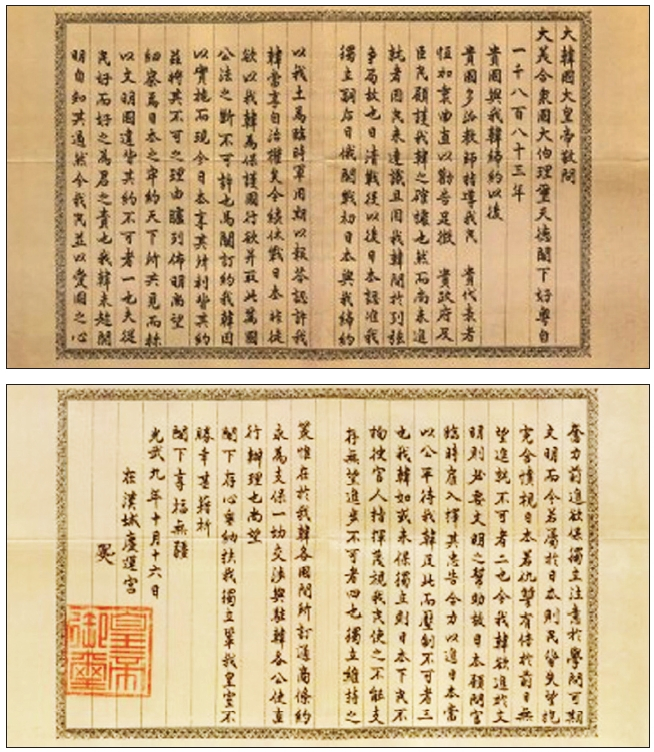 大韓國大皇帝敬問
大美合衆國大伯理璽天德閣下好粤自
一千八百八十三年
貴國與我韓締約以後
貴國多派教師特導我民 貴代表者
恒和衷曲直以勸告足徵 貴政府及
臣民顧護我韓之確據也然而尚未進
就者因民未達識且因我韓閒於列强
爭局故也日清戰後以後日本認准我
獨立嗣后日俄開戰初日本與我締約
以我土爲臨時軍用期以報答認許我
韓當享自治權矣今續休戰日本非徒
欲以我韓爲保護國行欲幷最此萬國
公法之斷不可許也爲閣訂約我韓因
以實施而現今日本享其所利皆其約
茲將其不可之理由臚列佈明尚望
細察焉日本之牢約天下所共見而
以文明國違背其約不可者一也夫從
民好而好之爲君之責也我韓未趁開
明自知其過然今我民並以愛國之心
奮力前進欲保獨立注意於學問可期
文明而今若屬於日本則民皆失望抱
寃含憤視日本若仇讐有倍於前日無
望進就不可者二也今我韓欲進於文
明則必要文明之幫助故日本顧問官
臨時雇入擇其忠告合力以進日本當
以公平待我韓足此而壓制不可者三
也我韓如或未保獨立則日本下民不
拘使官人指揮蔑視我民使之不能支
存無望進步不可者四也獨立維持之
策惟在於我韓各國間所訂通商條約
永爲支保一切交涉與駐韓各公使直
行辦理也尚望
閣下存心垂納扶我獨立單我皇室不
勝幸甚藉祈
閣下享福無疆
光武九年十月十六日
在漢城慶運宮
皇帝
御璽